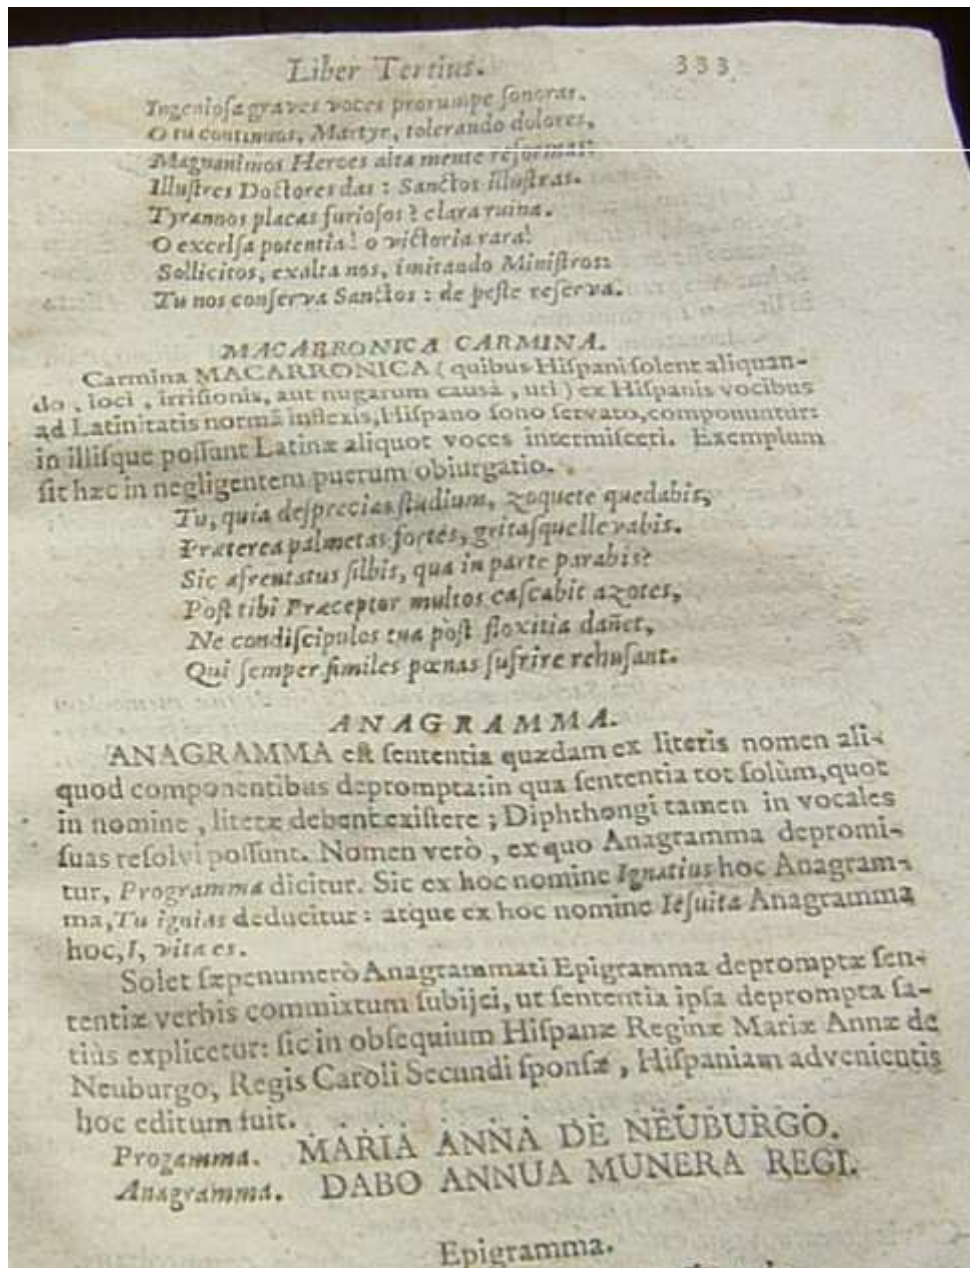 Liber Tertius. 333.
Ingeniosa graves voces prorumpe sonoras.
O tu continuos, Martyr, tolerando dolores,
Magnanimos Heroes alta mente reformas:
Illustres Doctores das: Sanctos illustras.
Tyrannos placas furiosos? clara ruina.
O excelsa potentia! o victoria rara!
Sollicitos, exalta nos, imitando Ministros:
Tu nos conserva Sanctos: de peste reserva.
MACARRONICA CARMINA.
Carmina MACARRONICA (quibus Hispani solent aliquan-
do, loci, irrisionis, aut nugarum causâ, uti) ex Hispanis vocibus
ad Latinitatis normã inflexis, Hispano sono servato, componuntur:
in illisque possunt Latinæ aliquot voces intermisceri. Exemplum
sit hæc in negligentem puerum obiurgatio.
Tu, quia desprecias studium, zoquete quedabis,
Præterea palmetas fortes, gritasque llevabis.
Sic afrentatus silbis, qua in parte parabis?
Post tibi Præceptor multos cascabit azotes,
Ne condiscipulos tua pòst floxitia dañet,
Qui semper similes pœnas sufrire rehusant.
ANAGRAMMA.
ANAGRAMMA est sententia quædam ex literis nomen ali-
quod componentibus deprompta: in qua sententia tot solùm, quot
in nomine, literæ debent existere; Diphthongi tamen in vocales
suas resolvi possunt. Nomen verò, ex quo Anagramma depromi-
tur, Programma dicitur. Sic ex hoc nomine Ignatius hoc Anagram-
ma, Tu ignias deducitur: atque ex hoc nomine Iesuita Anagramma
hoc, I, vita es.
Solet sæpenumerò Anagrammati Epigramma depromptæ sen-
tentiæ verbis commixtum subijci, ut sententia ipsa deprompta sa-
tiùs explicetur: sic in obsequium Hispanæ Reginæ Mariæ Annæ de
Neuburgo, Regis Caroli Secundi sponsæ, Hispaniam advenientis
hoc editum fuit.
Progamma. MARIA ANNA DE NEUBURGO.
Anagramma. DABO ANNUA MUNERA REGI.
Epigramma.